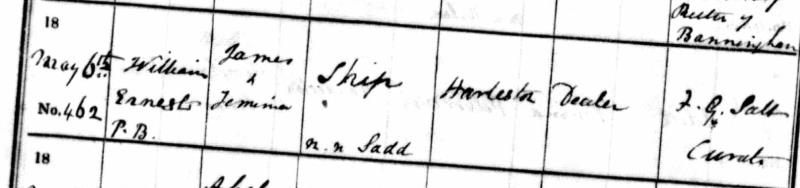 Rector of
Banningham
18
May 6th William James & Jemima Ship Harleston Dealer F. G. Salt
No. 462 Ernest Curate
P.B. n.n Sadd
18